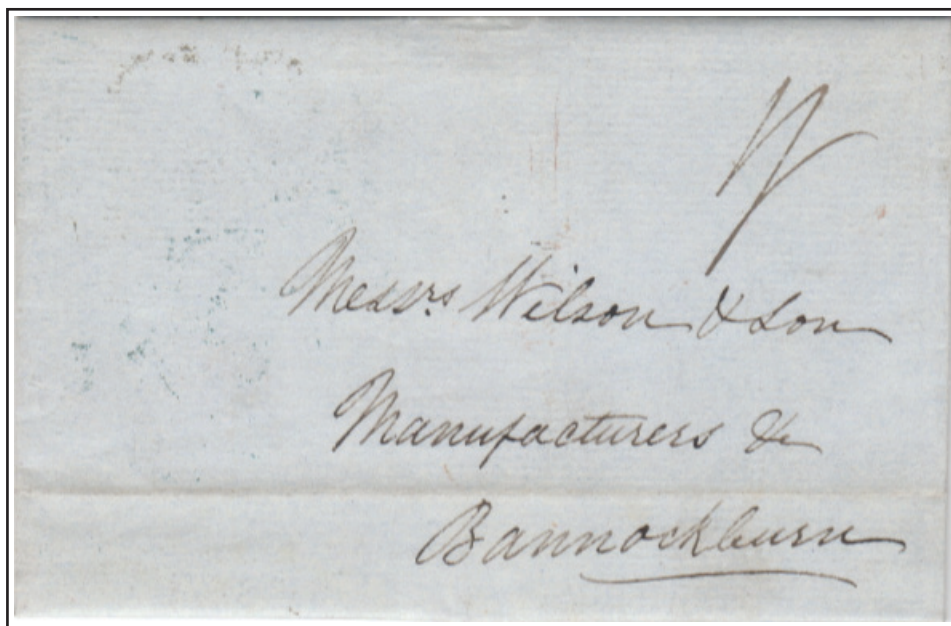 Messrs. Wilson & Son
Manufacturers &c
Bannockburn